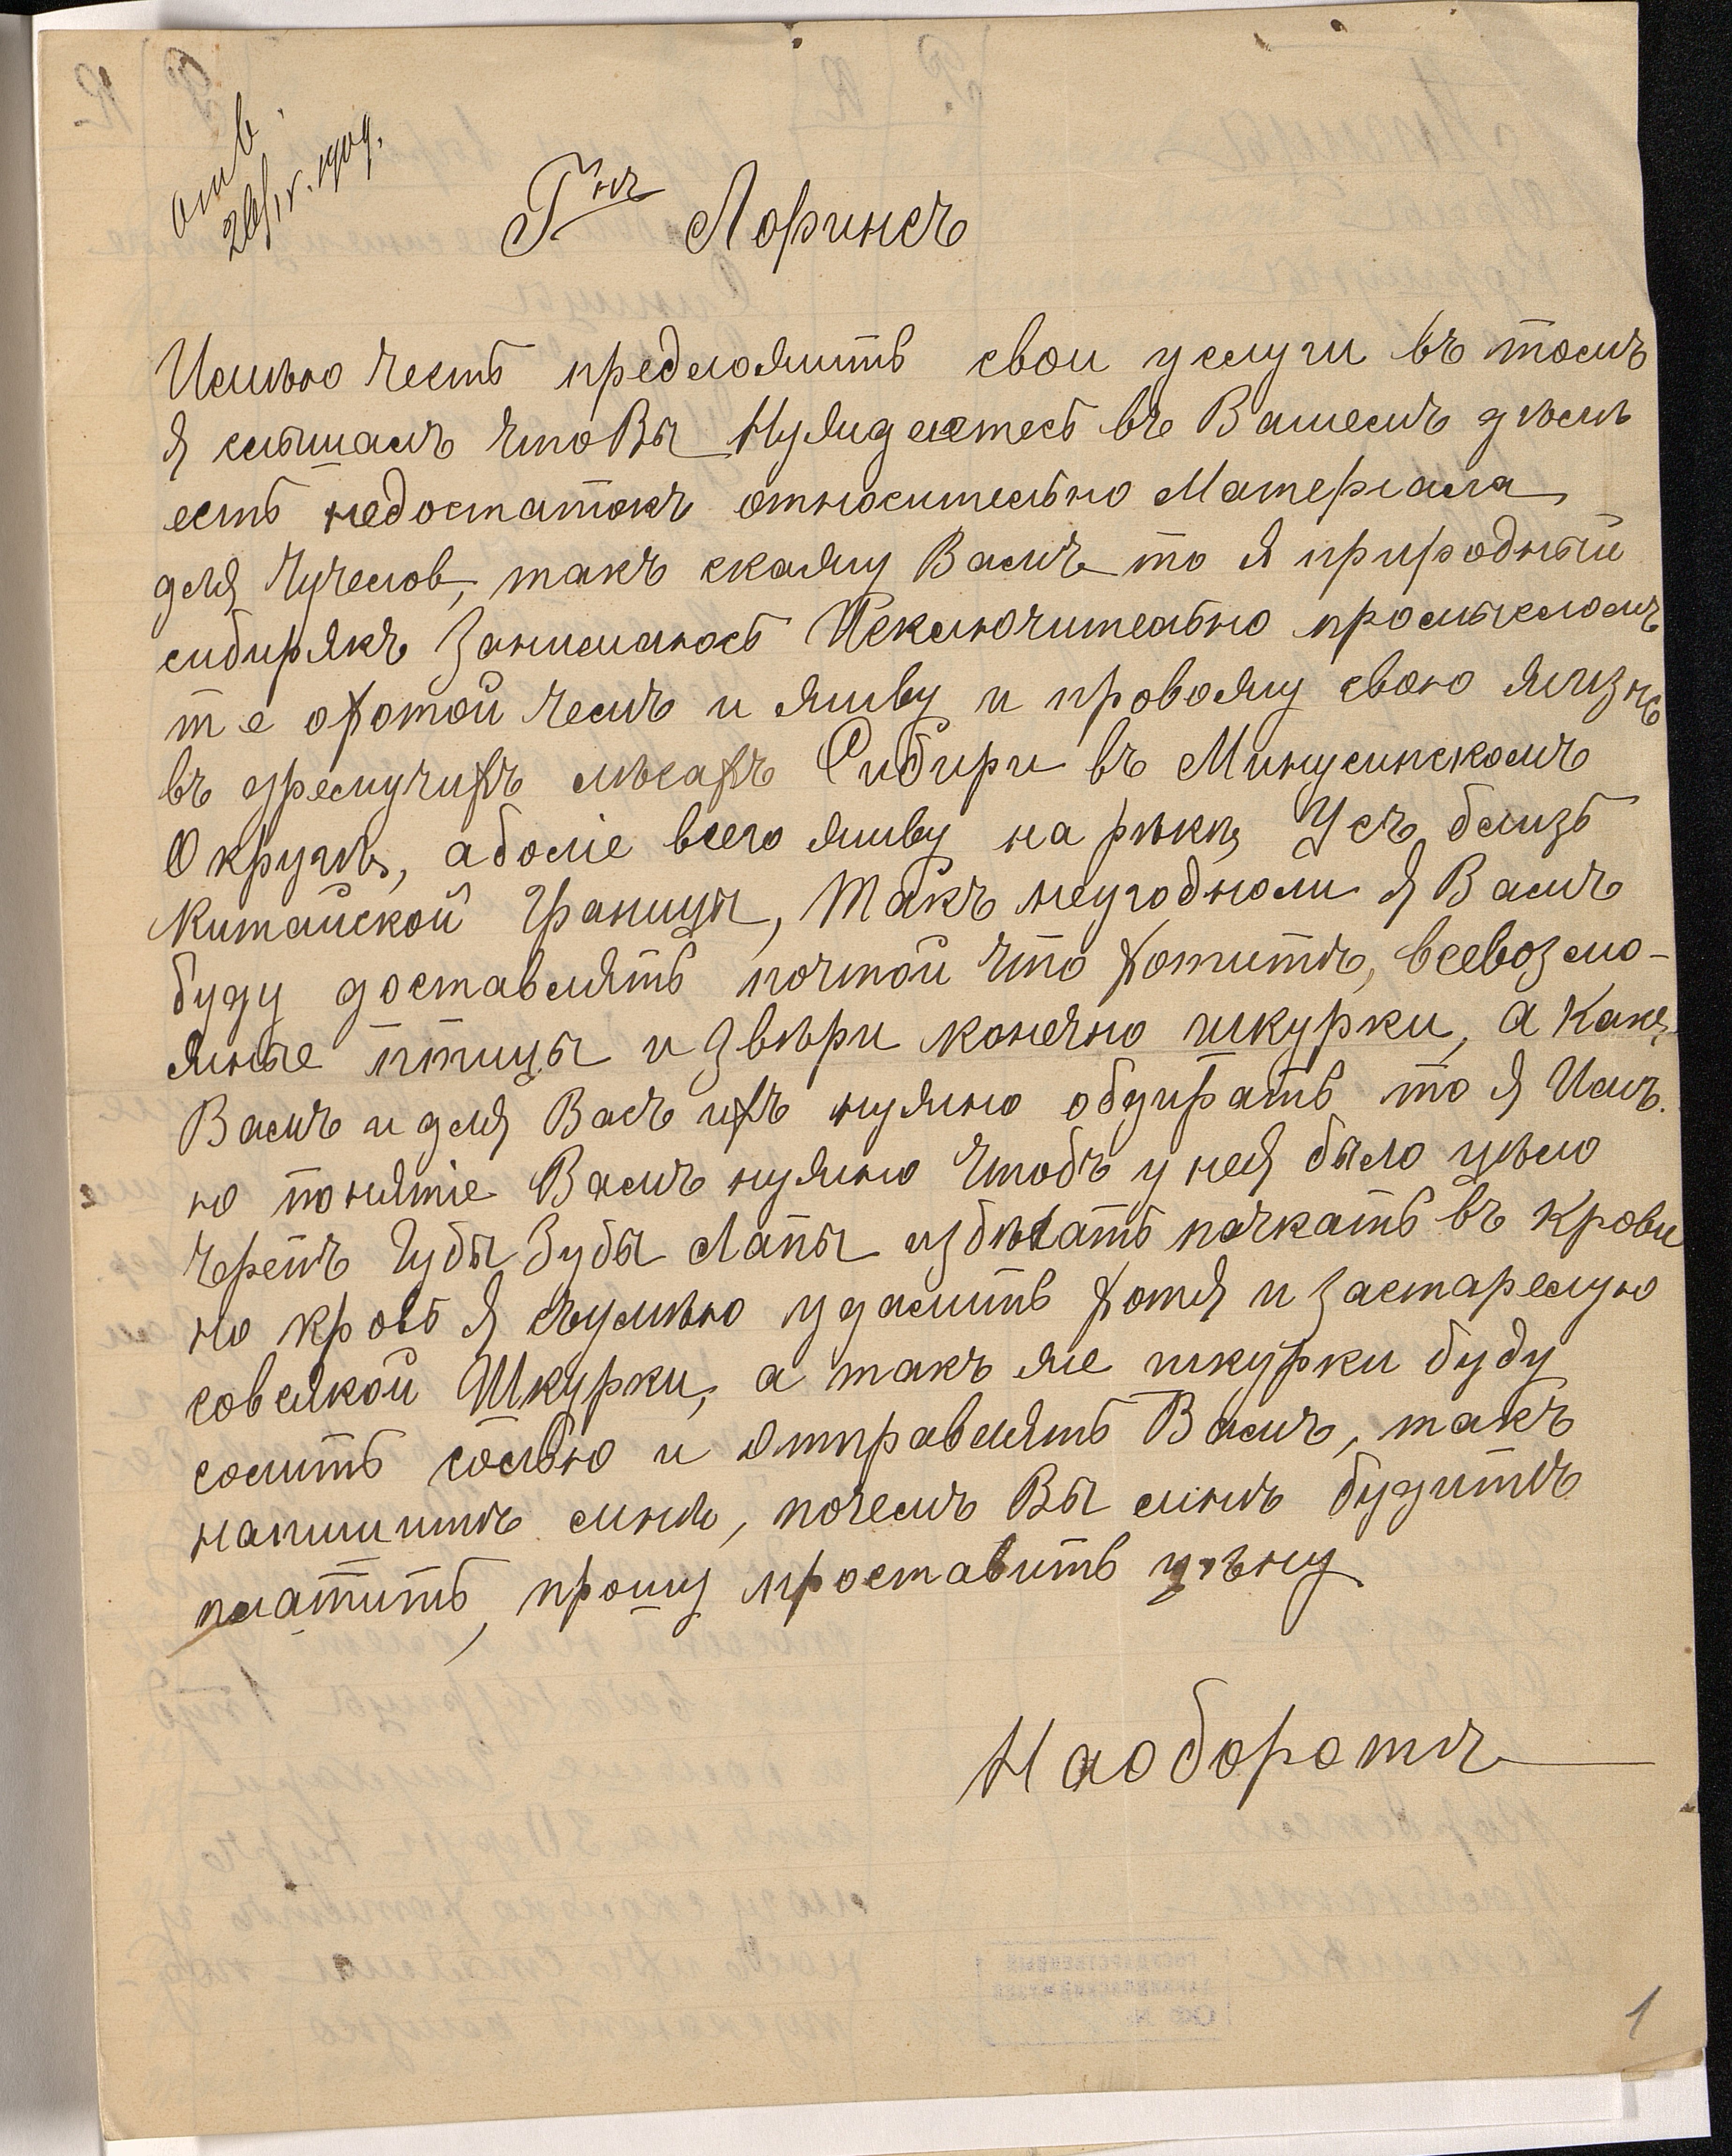 отв.
20/IV. 1909.
Г-нъ Лоринсъ
Имѣю честь предложить свои услуги въ томъ
я слышалъ что Вы Нуждаетесь въ Вашемъ дѣлѣ
есть недостатокъ относительно Матеріала
для Чучелов, такъ скажу Вамъ то я природный
сибирякъ Занимаюсь Исключительно промысломъ
т е охотой чемъ и живу и провожу свою жизнь
въ дремучихъ лѣсахъ Сибири въ Минусинскомъ
Округѣ, а боліе всего живу на рѣкѣ Усъ близь
Китайской Границы, Такъ неугодноли я Вамъ
буду доставлять почтой что хотитъ, всевозмо-
жные птицы и Звѣри конечно шкурки, а Какъ
Вамъ и для Васъ ихъ нужно обдирать то я Имѣ
ю понятіе Вамъ нужно Чтобъ у нея было цѣло
черепъ Губы Зубы Лапы избѣгать пачкать въ крови
но кровь я съумѣю удалить хотя и застарелую
совсякой Шкурки, а такъ же шкурки буду
солить солью и Отправлять Вамъ, такъ
напишитъ мнѣ, почемъ Вы мнѣ будитъ
платить, прошу проставить цѣну
Наоборотъ
1